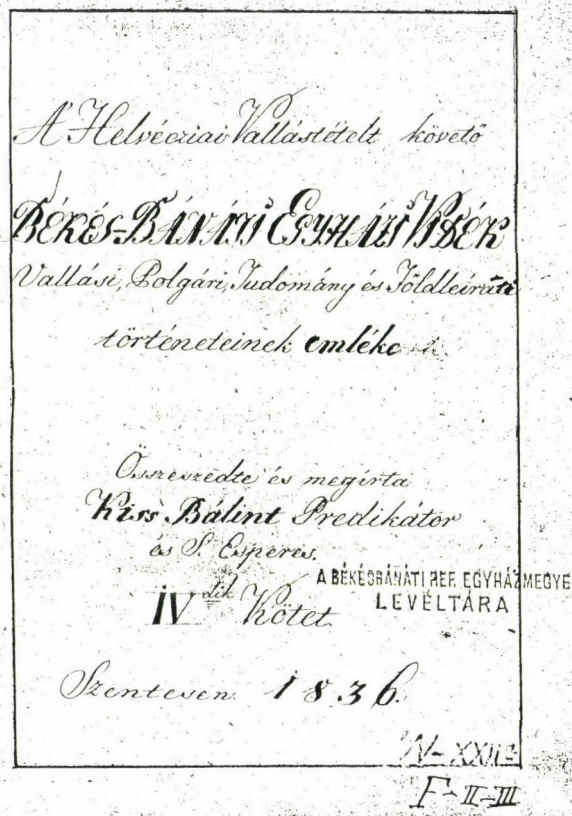 A' Helvécziai Vallástételt követő
BÉKÉS-BÁNÁTI EGYHÁZI VIDÉK
Vallási, Polgári, Tudomány és Földleirati
történeteinek emléke
Összeszedte és megírta
Kiss Bálint Predikátor
és S. Esperes.
IVdik Kötet
A BÉKÉSBÁNÁTI REF. EGYHÁZMEGYE
LEVÉLTÁRA
Szentesen 1836.
F-II-III